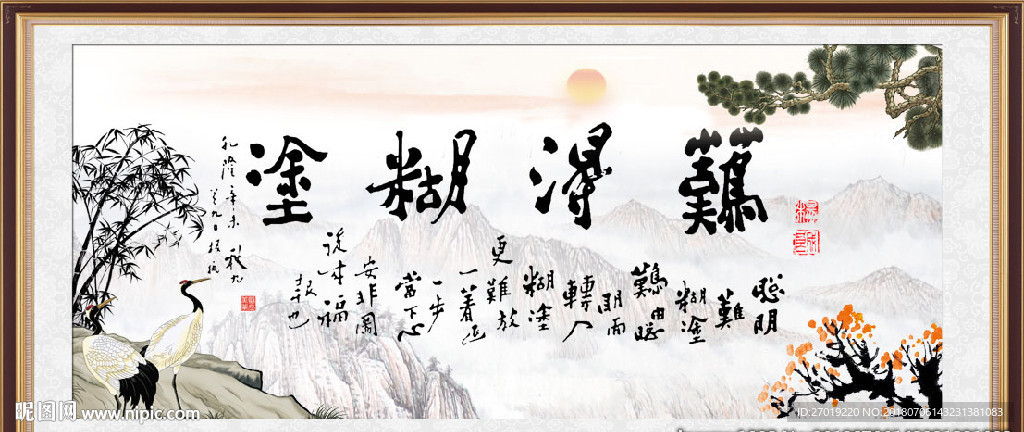 難得糊塗
聰明
難
糊塗
難由聰
明而
轉入
糊塗
更難放
一着退
一步
當下心
安非圖
後来福
報也
乾隆辛未秋九
板橋
昵图网 www.nipic.com
ID:27019220 NO:20180705143231381083